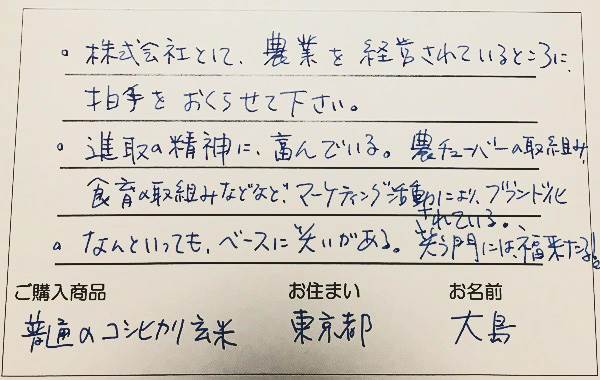 。株式会社として、農業を経営されているところに、
拍手をおくらせて下さい。
。進取の精神に、富んでいる。農チューバーの取組み、
食育の取組みなどなど、マーケティング活動により、ブランド化
されている。
。なんといっても、ベースに笑いがある。笑う門には、福来たる!。
ご購入商品 お住まい お名前
普通のコシヒカリ玄米 東京都 大島